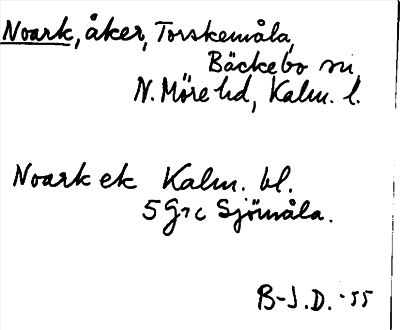 Noark, åker, Torskemåla,
Bäckebo sn,
N. Möre hd, Kalm. l.
Noark ek Kalm. bl.
5 G7c Sjömåla.
B-J.D. -55